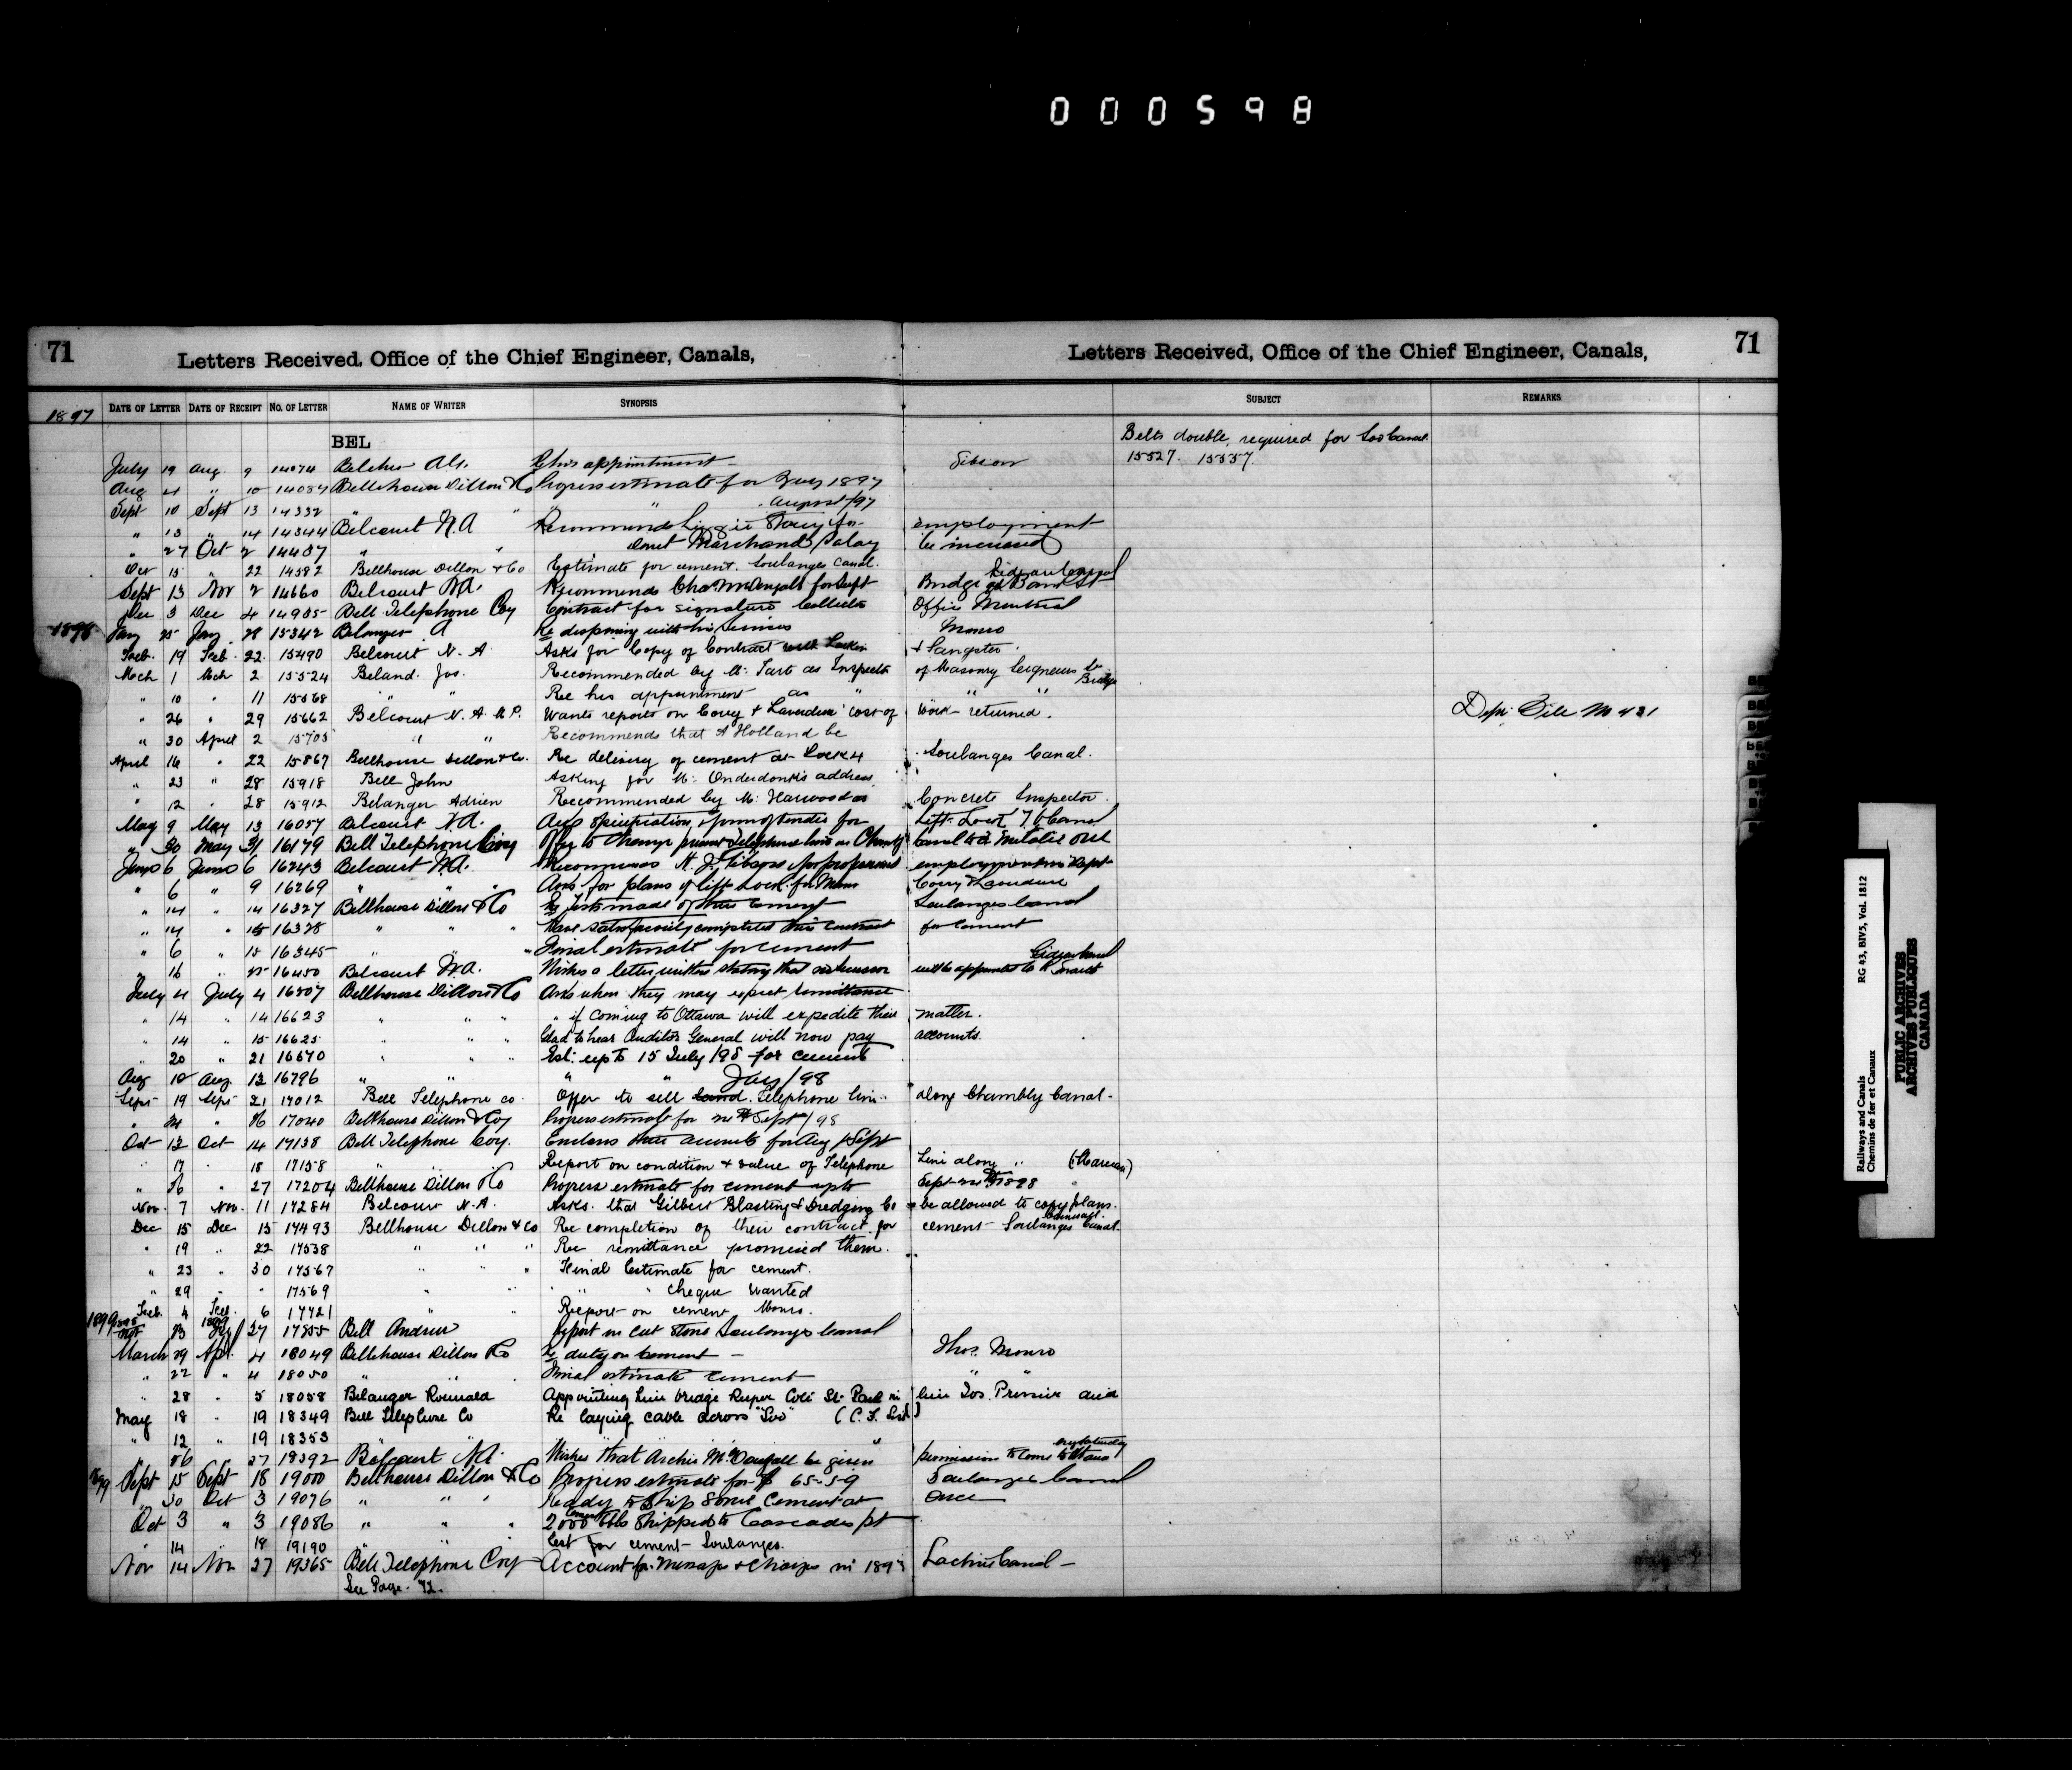 000598
71 Letters Received, Office of the Chief Engineer, Canals, Letters Received, Office of the Chief Engineer, Canals, 71
1897 DATE OF LETTER DATE OF RECEIPT NO. OF LETTER NAME OF WRITER SYNOPSIS SUBJECT REMARKS
BEL Belts double, required for Soo Canal.
15527. 15557.
July 19 Aug. 9 14074 Belcher Alx. Re his appointment Gibson
Aug 4 " 10 14084 Bellhouse Dillon & Co Progress estimate for July 1897
Sept 10 Sept 13 14332 " " " August/97
" 13 " 14 14344 Belcourt N.A Recommends Lizzie for employment
" 27 Oct 2 14487 " " Marchand salary be increased
Oct 15 " 22 14582 Bellhouse Dillon & Co Estimate for cement. Soulanges Canal.
Sept 13 Nov 2 14660 Belcourt N.A. Recommends Chas McDougall for Supt Bridge at Bank St Rideau Canal
Dec 3 Dec 4 14985 Bell Telephone Coy Contract for signature Collector Office Montreal
1898 Jany 25 Jany 28 15342 Belanger A Re dispensing with his services Monro
Feb. 19 Feb. 22 15490 Belcourt N. A. Asks for Copy of Contract & Sangster.
Mch 1 Mch 2 15524 Beland. Jos. Recommended by Mr. Tarte as Inspector of Masonry Seigneurs St Bridge
" 10 " 11 15568 " " Re his appointment as " " "
" 26 " 29 15662 Belcourt N. A. M.P. Wants reports on Corry & Laverdure cost of work returned. Dept. File No 431
" 30 April 2 15705 " " Recommends that A Holland be
April 16 " 22 15867 Bellhouse Dillon & Co. Re delivery of cement at Lock 4 Soulanges Canal.
" 23 " 28 15918 Bell John Asking for Mr. Onderdonk's address
" 12 " 28 15912 Belanger Adrien Recommended by Mr. Harwood as Concrete Inspector.
May 9 May 13 16057 Belcourt N.A. Asks specification & form of tender for Lift Lock T. Canal
" 30 May 31 16179 Bell Telephone Coy Offer to change present Telephone line on Chambly Canal to a metallic one
June 6 June 6 16243 Belcourt N.A. Recommends N. J. Gibson for professional employment in Dept
" 6 " 9 16269 " " Asks for plans of lift lock for Messrs Corry & Laverdure
" 14 " 14 16327 Bellhouse Dillon & Co Re tests made of their cement Soulanges Canal
" 14 " 15 16328 " " " Have satisfactorily completed their contract for cement
" 6 " 15 16345 " " " Final estimate for cement
" 16 " 16450 Belcourt N.A. Wishes a letter written stating that will be appointed to
July 4 July 4 16507 Bellhouse Dillon & Co Asks when they may expect remittance
" 14 " 14 16623 " " " " if coming to Ottawa will expedite their matter.
" 14 " 15 16625 " " " Glad to hear Auditor General will now pay accounts.
" 20 " 21 16670 " " " Est. up to 15 July/98 for cement
Aug 10 Aug. 12 16796 " " " " July/98
Sept 19 Sept 21 17012 Bell Telephone Co. Offer to sell Telephone line along Chambly Canal.
" " 26 17040 Bellhouse Dillon & Coy Progress estimate for Sept/98
Oct 12 Oct 14 17138 Bell Telephone Coy. Encloses their accounts for Aug & Sept
" 17 " 18 17158 " " " Report on condition & value of Telephone Line along " (Marceau)
" 26 " 27 17204 Bellhouse Dillon & Co Progress estimate for cement up to Sept 1898
Nov. 7 Nov. 11 17284 Belcourt N. A. Asks. that Gilbert Blasting & Dredging Co be allowed to copy plans.
Dec 15 Dec 15 17493 Bellhouse Dillon & Co Re completion of their contract for cement Soulanges Canal.
" 19 " 22 17538 " " " Re remittance promised them.
" 23 " 30 17567 " " " Final Estimate for cement.
" 29 " " 17569 " " " " cheque wanted
1899 Feb. 4 Feb. 6 17721 " " Report on cement Monro.
27 17855 Bell Andrew Report on Cut Stone Soulanges Canal
March 29 Apl. 4 18049 Bellhouse Dillon & Co Re duty on Cement Thos. Monro
" 22 " 4 18050 " " Final estimate cement "
" 28 " 5 18058 Belanger Romuald Appointing him bridge keeper Coté St. Paul in lieu Jos.
May 18 " 19 18349 Bell Telephone Co Re laying cable across "Soo"
" 12 " 19 18353 " " "
" 26 " 27 18392 Belcourt N.A. Wishes that Archie McDougall be given permission to come to Ottawa every Saturday
Sept 15 Sept 18 19000 Bellhouse Dillon & Co Progress estimate for $ 65-59 Soulanges Canal
" 30 Oct 3 19076 " " " Ready to Ship Some Cement at Once
Oct 3 " 3 19086 " " " 2000 bbls cement shipped to Cascades pt
" 14 " 18 19190 " " Est for cement Soulanges.
Nov 14 Nov 27 19365 Bell Telephone Coy Account for Message & charges in 1897 Lachine Canal
See Page. 72.
Railways and Canals RG 43, BIV5, Vol. 1812
Chemins de fer et Canaux
PUBLIC ARCHIVES
ARCHIVES PUBLIQUES
CANADA